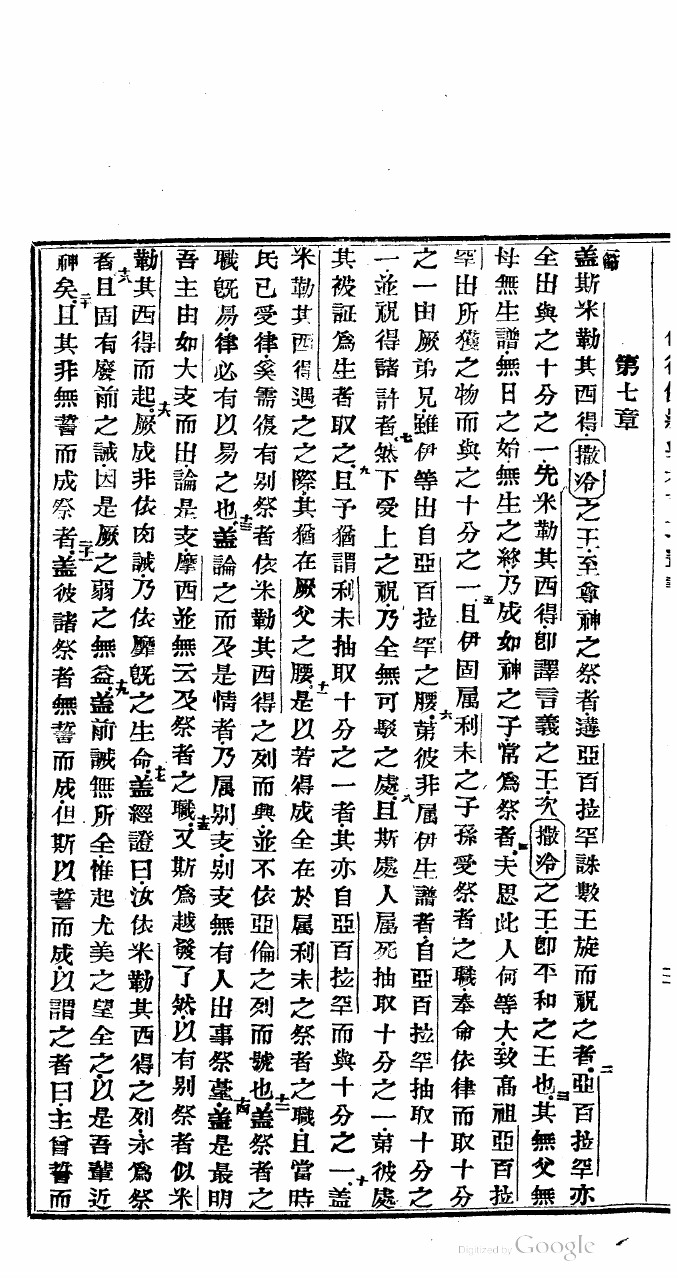 第七章
一節蓋斯米勒其西得撒冷之王至尊神之祭者遘亞百拉罕誅數王旋而祝之者二亞百拉罕亦
全出與之十分之一先米勒其西得卽譯言義之王次撒冷之王卽平和之王也三其無父無
母無生譜無日之始無生之終乃成如神之子常爲祭者四夫思此人何等大致高祖亞百拉
罕出所獲之物而與之十分之一五且伊固属利未之子孫受祭者之職奉命依律而取十分
之一由厥弟兄雖伊等出自亞百拉罕之腰六苐彼非属伊生譜者自亞百拉罕抽取十分之
一並祝得諸許者七然下受上之祝乃全無可駁之處八且斯處人属死抽取十分之一苐彼處
其被証爲生者取之九且予猶謂利未抽取十分之一者其亦自亞百拉罕而與十分之一十蓋
米勒其西得遇之之際其猶在厥父之腰十一是以若得成全在於属利未之祭者之職且當時
民已受律奚需復有别祭者依米勒其西得之列而興並不依亞倫之列而號也十二蓋祭者之
職旣易律必有以易之也十三蓋論之而及是情者乃属别支别支無有人出事祭臺十四蓋是最明
吾主由如大支而出論是支摩西並無云及祭者之職十五又斯爲越發了然以有别祭者似米
勒其西得而起十六厥成非依肉誡乃依靡旣之生命十七蓋經證曰汝依米勒其西得之列永爲祭
者十八且固有廢前之誡因是厥之弱之無益十九蓋前誡無所全惟起尤美之望全之以是吾輩近
神矣二十且其非無誓而成祭者二十一蓋彼諸祭者無誓而成但斯以誓而成以謂之者曰主曾誓而
Digitized by Google